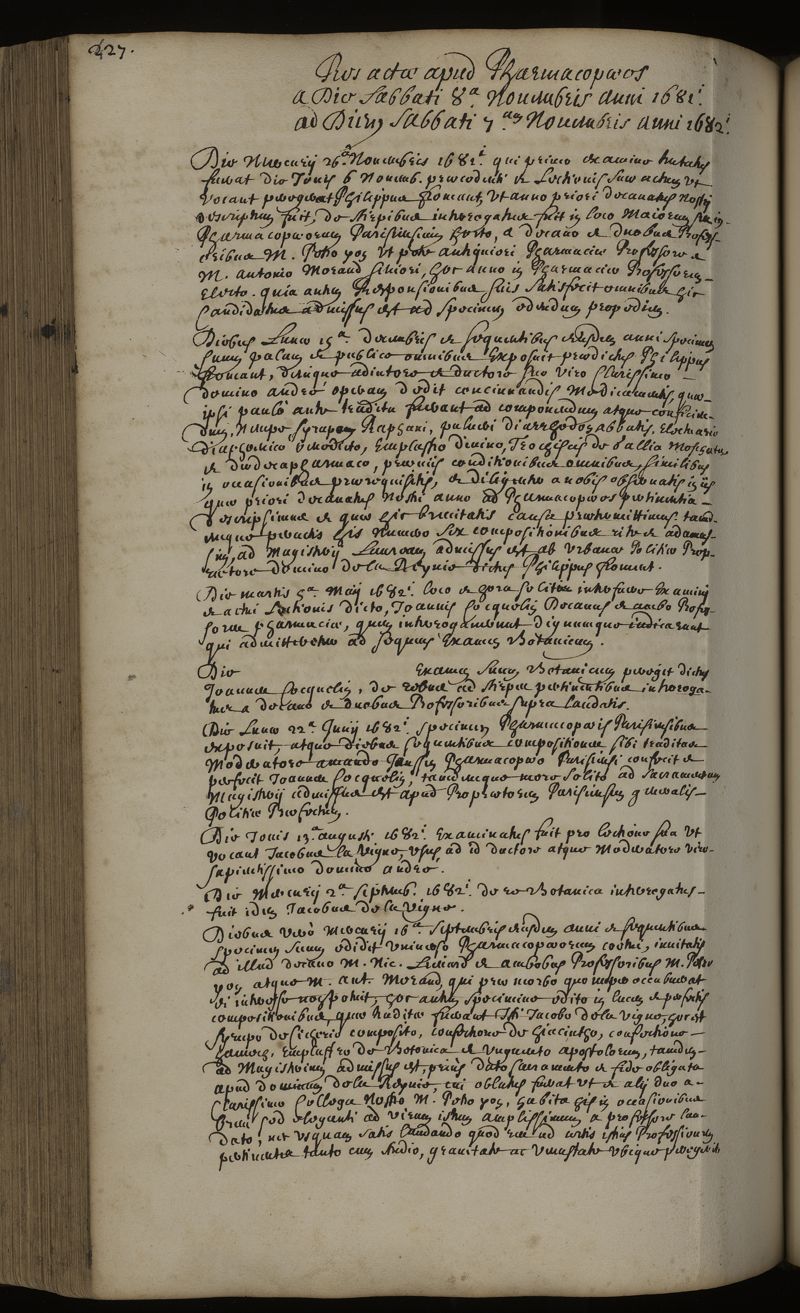 227.
Res actæ apud Pharmacopæos
a Die Sabbati 8.ª Nouembris anni 1681.
ad Diem Sabbati 7.am Nouembris anni 1682.
Die Mercurij 26.ª Nouembris 1681. qui primo examine
fuerat die Jouis 6 Nouemb. præcedenti de Lectionis suæ actum, vt
vocant Philippus floment, vt anno priori decanatus nostri
descriptum fuit, de stirpibus interrogatus fuit in loco Maiorum suum
Pharmacopæorum Parisiensium horto, a decano et duobus Profess-
oribus M. Petro yon vt pote antiquiori Pharmaciæ Professore et
M. Antonio Morand seniori, hoc anno in Pharmaciæ Professorem
electo. quia autem Responsionibus suis satisfecit omnibus hic
Candidatus admissus est ad specimen edendum propediem.
Diebus Lunæ 15.ª decembris et sequentibus eiusdem anni specimen
suum palam et publice omnibus exposuit prædictus Philippus
floment, denique adiutore et ductore suo viro Clarissimo
Domino André operam dedit concinnandis Medicamentis, quæ
ipsi paulò ante tradita fuerant ad componendum atque conficien-
dum, Nempe syrupum Raphani, pulueri diarrhodon abbatis, Electuario
diaphœnico Emplastro diuino, Trochiscis de Gallia Moschata,
et præmiis conditionibus omnibus, similibus
in occasionibus prærequisitis, et diligenter a nobis obseruatis in iis
quæ priori decanatus Nostri anno ad Pharmacopæos pertinentia
descripsimus et quæ hic breuitatis causa prætermittimus. tand-
emque peractis his Numero sex compositionibus rite et adamus-
sim, ad Magisterij Lauream admissus est ab Vrbanæ Politiæ Præf-
ectore Domino de la Reynie dictus Philippus floment.
Die martis 5.ª Maij 1682. loco et hora solita interfuere Examini
et actui Lectionis dicto, Joannis Cocquelin Decanus et ambo Profes-
sores pharmaciæ, quem interrogauerunt dignumque iudicarunt
qui admitteretur ad sequens Examen Botanicum.
Die Examen suum Botanicum peregit dictus
Joannes Cocquelin, de rebus ad stirpes pertinentibus interroga-
tus a decano et duobus Professoribus supra laudatis.
Die Lunæ 22.ª Junij 1682. specimen Pharmacopæis Parisiensibus
exposuit, atque diebus sequentibus compositiones sibi traditas
Moderatore amando Jansen Pharmacopæo Parisiensi confecit et
perfecit Joannes Cocquelin, tandemque more solito ad sacramentum
Magisterij admissus est apud Proprætorem Parisiensem generalis
Politiæ Præfectum.
Die Jouis 13.ª augusti 1682. Examinatus fuit pro lectione sua vt
vocant Jacobus la Vigne, vsus ad id ductore atque Moderatore viro
sapientissimo domino andré.
Die Mercurij 2.ª Septemb. 1682. de re Botanica interrogatus
fuit idem Jacobus de la Vigne.
Diebus verò Mercurij 16.ª Septembris eiusdem anni et sequentibus
specimen suum edidit vniuerso Pharmacopæorum cœtui, inuitatis
ad illud decano M. Nic. Lienard et ambobus Professoribus M. Petro
yon atque M. ant. Morand, qui præ morbo quo nuper occubuerat
ei interesse non potuit, hoc autem specimine edito in lucem et perfectis
compositionibus, quæ traditæ fuerant Isti Jacobo de la Vigne, hoc est
syrupo de Cichorio composito, confectione de hiacintho, confectione
hamech, Emplastro de Betonica et vnguento apostolorum, tandem
ad Magisterium admissus est, priùs dato sacramento et fide obligata
apud dominum de la Reynie, cui oblatus fuerat vt et alij duo a
Clarissimo Collega Nostro M. Petro yon, habita his in occasionibus
breui sed eleganti ad virum istum amplissimum a professore lau-
dato, nec vsquam satis laudando quod ad artis istius Professionem
pertinentia tanto cum studio, grauitate ac venustate vbique peregerit